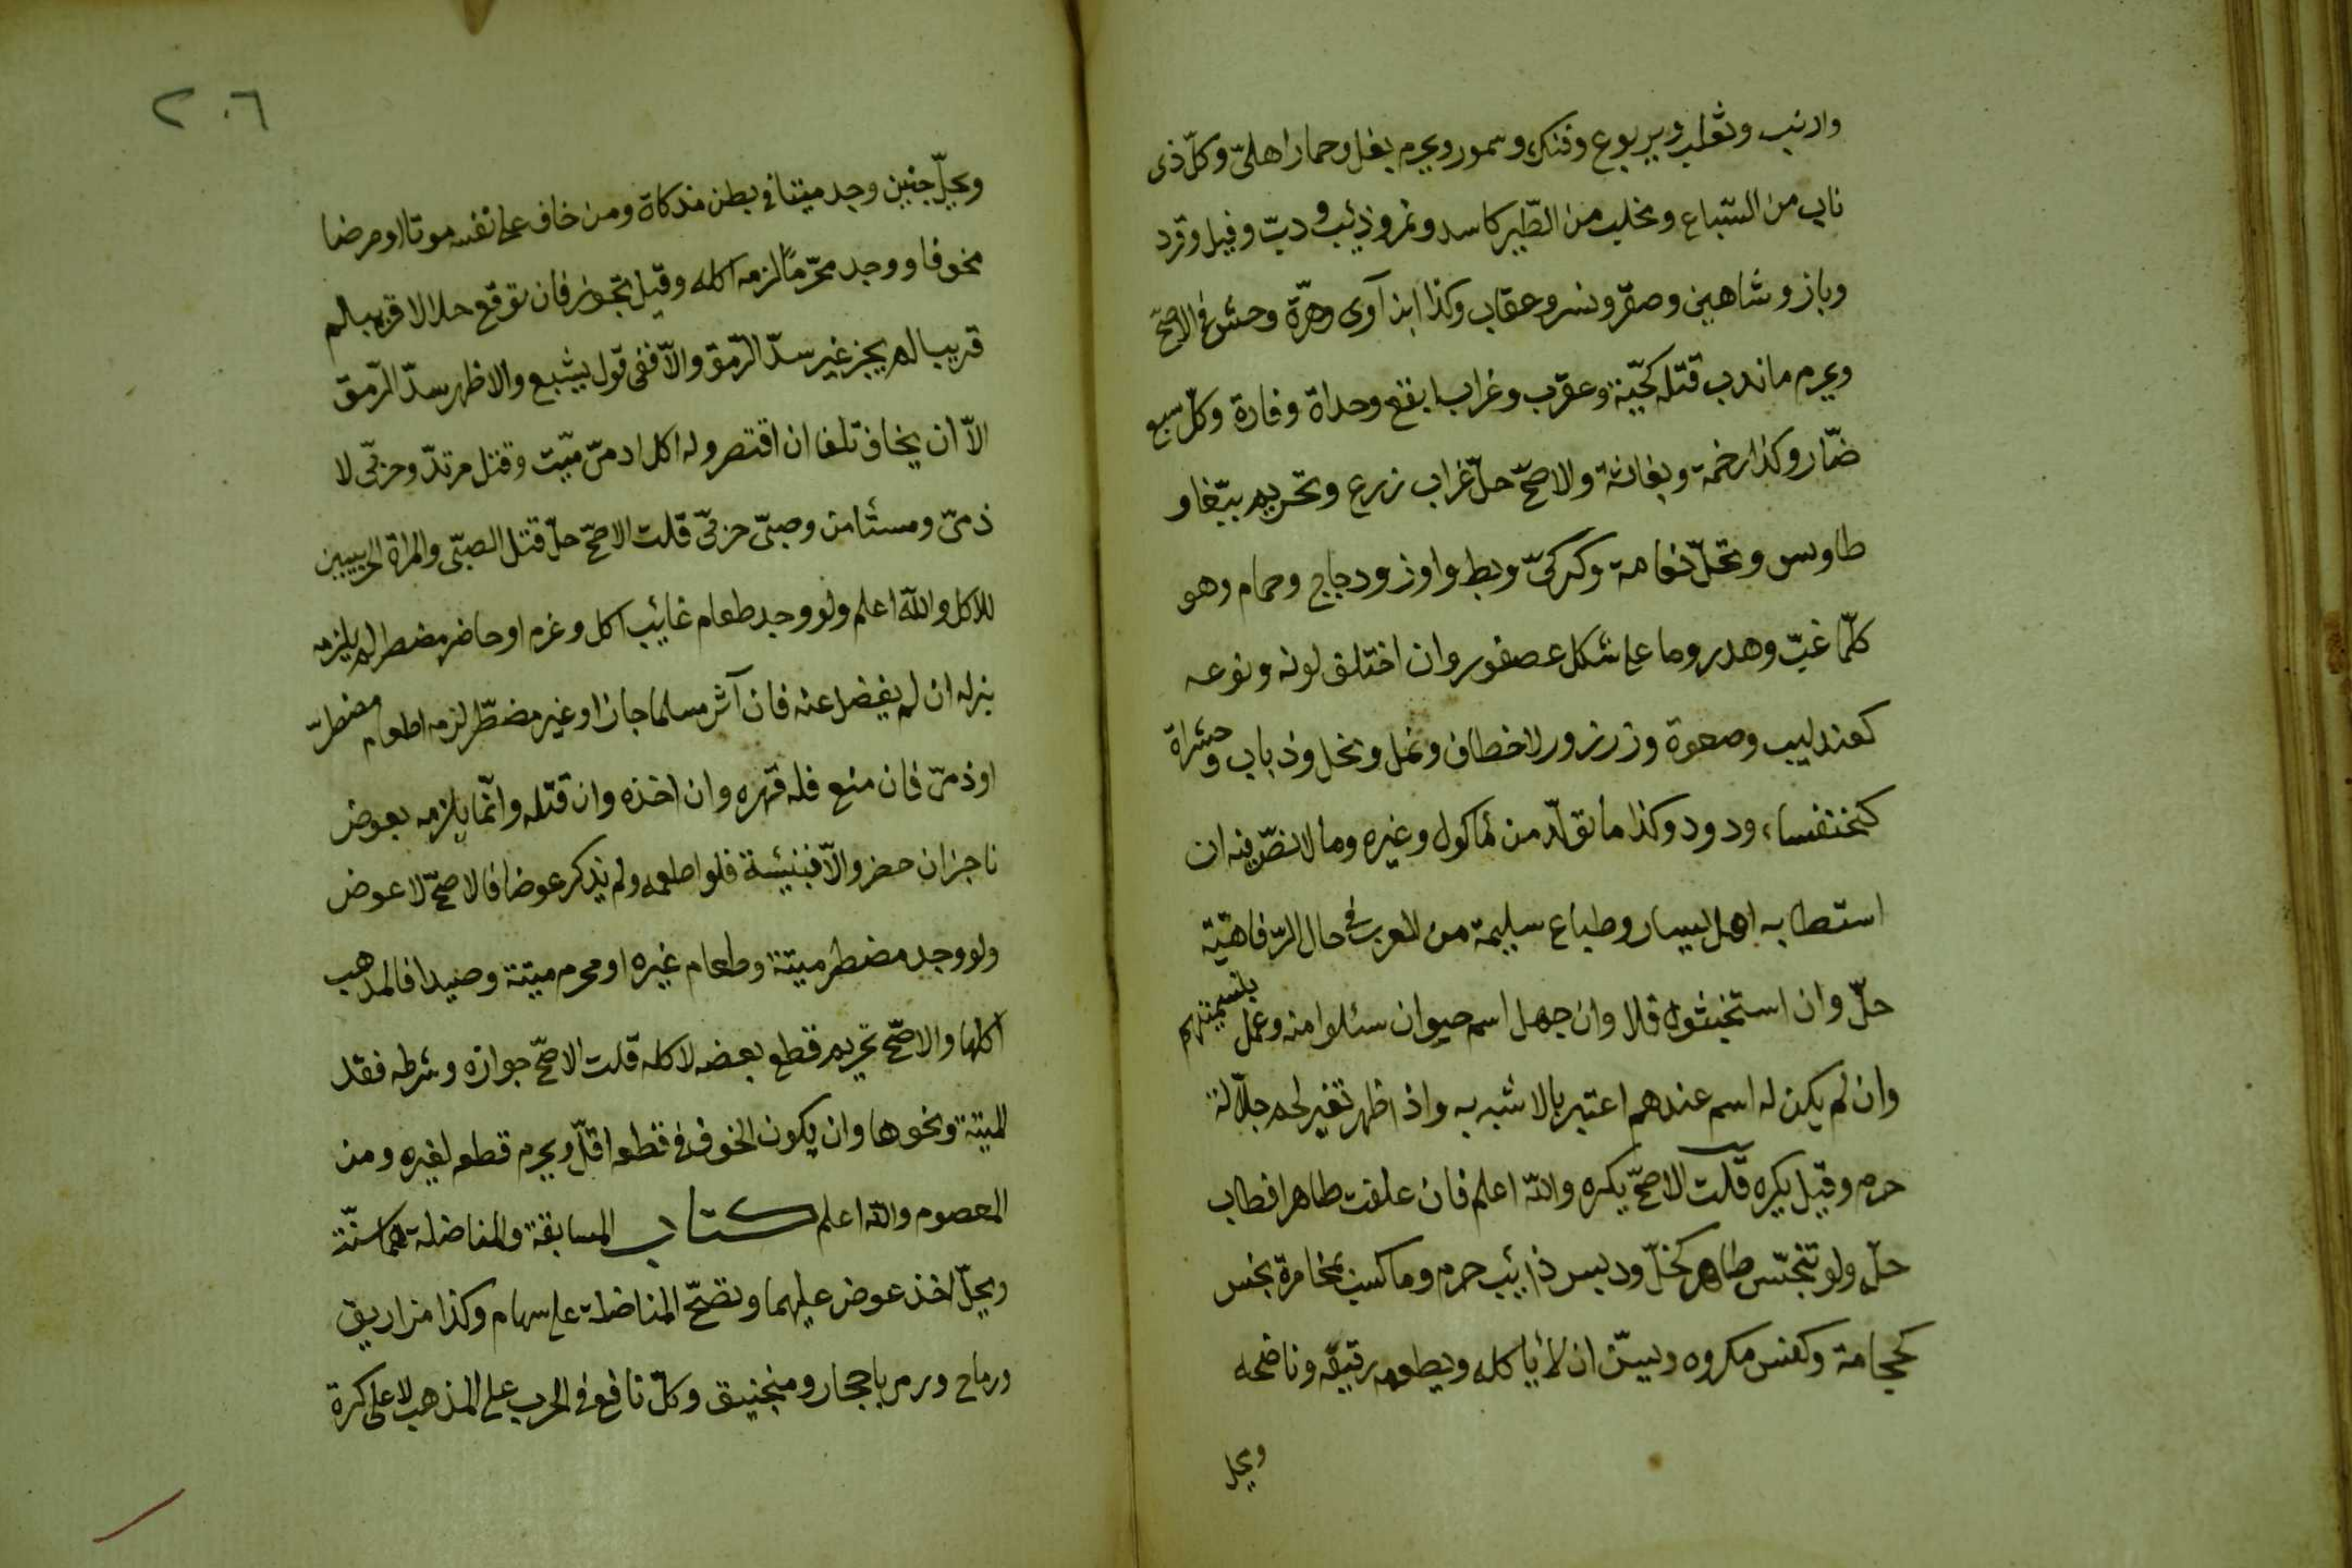 وارنب وثعلب ويربوع وفنك وسمور ويحرم بغل وحمار اهلىّ وكلّ ذى
ناب من السّباع ومخلب من الطّير كاسد ونمر وذئب ودبّ وفيل وقرد
وباز وشاهين وصقر ونسر وعقاب وكذا ابن آوى وهرّة وحش فى الاصحّ
ويحرم ما ندب قتله كحيّة وعقرب وغراب ابقع وحداة وفارة وكلّ سبع
ضّار وكذا رخمة وبغاثة والاصحّ حلّ غراب زرع وتحريم ببّغا و
طاوس وتحلّ نعامة وكركىّ وبط واوز ودجاج وحمام وهو
كلّما عبّ وهدر وما على شكل عصفور وان اختلف لونه ونوعه
كعندليب وصعوة وزرزور لا خطاف ونمل ونحل وذباب وحشراة
كخنفساء ودود وكذا ما تولّد من مأكول وغيره وما لا نصّ فيه ان
استطابه اهل يسار وطباع سليمة من العرب فى حال الرّفاهيّة
حلّ وان استخبثوه فلا وان جهل اسم حيوان سئلوا منه وعمل بتسميتهم
وان لم يكن له اسم عندهم اعتبر بالاشبه به واذا ظهر تغير لحم جلّالة
حرم وقيل يكره قلت الاصحّ يكره والله اعلم فان علفت طاهرا فطاب
حلّ ولو تنجّس طاهر كخلّ ودبس ذائب حرم وما كسب بمخامرة نجس
كحجامة وكنس مكروه ويسنّ ان لا يأكله ويطعمه رقيقه وناضحه
ويحل
٢٠٦
ويحلّ جنين وجد ميتا فى بطن مذكاة ومن خاف على نفسه موتا او مرضا
مخوفا ووجد محرّمًا لزمه اكله وقيل يجوز فان توقع حلالا قريبا لم
قريبا لم يجز غير سدّ الرّمق والّا ففى قول يشبع والاظهر سدّ الرّمق
الّا ان يخاف تلفا ان اقتصر وله اكل ادمىّ ميّت وقتل مرتدّ وحربّى لا
ذمىّ ومستأمن وصبىّ حربىّ قلت الاصحّ حلّ قتل الصبّى والمراة الحربيين
للاكل والله اعلم ولو وجد طعام غائب اكل وغرم او حاضر مضطر لم يلزمه
بذله ان لم يفضل عنه فان آثر مسلما جاز او غير مضطّر لزمه اطعام مضطرّ
او ذمىّ فان منع فله قهره وان اخذه وان قتله وانّما يلزمه بعوض
ناجز ان حضر والّا فبنيئسة فلو اطعمه ولم يذكر عوضا فالاصحّ لا عوض
ولو وجد مضطر ميتة وطعام غيره او محرم ميتة وصيدا فالمذهب
اكلها والاصحّ تحريم قطع بعضه لاكله قلت الاصحّ جوازه وشرطه فقد
الميتة ونحوها وان يكون الخوف فى قطعه اقلّ ويحرم قطعه لغيره ومن
المعصوم والله اعلم كتاب المسابقة والمناضلة هما سنّة
ويحلّ اخذ عوض عليهما وتصحّ المناضلة على سهام وكذا مزاريق
ورماح ورمى باحجار ومنجنيق وكلّ نافع فى الحرب على المذهب لا على كرة